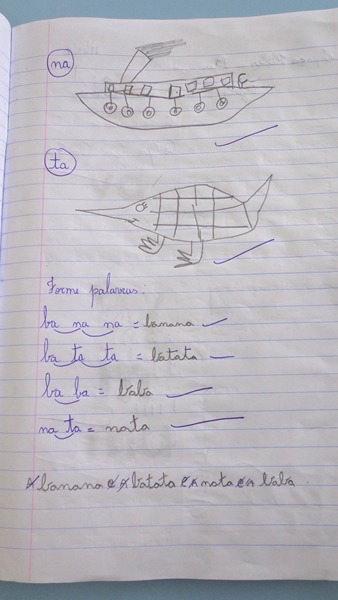 na
ta
Forme palavras:
ba na na = banana
ba ta ta = batata
ba ba = baba
na ta = nata
A banana e A batata e A nata e A baba.